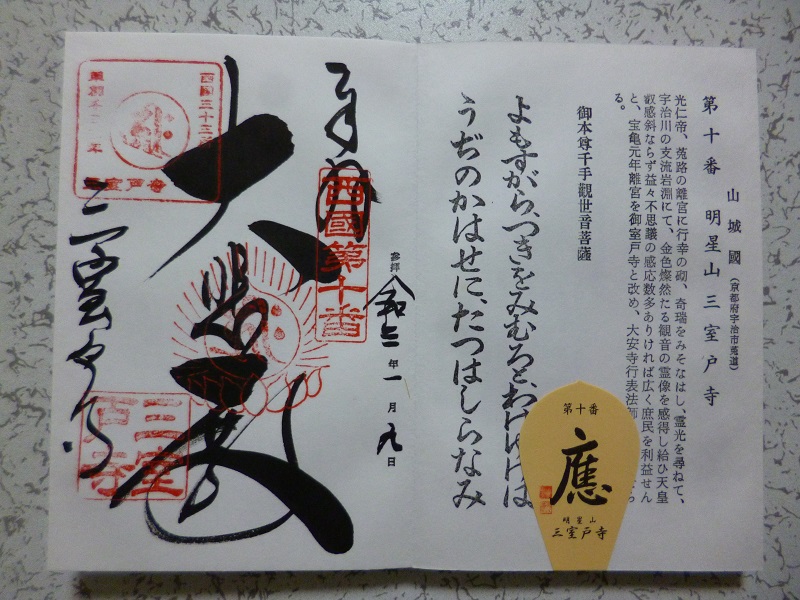 第十番 明星山三室戸寺
山城國（京都府宇治市莵道）
光仁帝、菟路の離宮に行幸の砌、奇瑞をみそなはし、霊光を尋ねて、
宇治川の支流岩淵にて、金色燦然たる観音の霊像を感得し給ひ天皇
叡感斜ならず益々不思議の感応数多ありければ広く庶民を利益せん
と、宝亀元年離宮を御室戸寺と改め、大安寺行表法師
る。
御本尊千手觀世音菩薩
よもすがら、つきをみむろと、わけゆけば
うぢのかはせに、たつはしらなみ
第十番
應
明星山
三室戸寺
参拝 令和二年一月九日
奉拝
西國第十番
大悲殿
三室戸寺
三室戸寺
西国三十三
三室戸寺